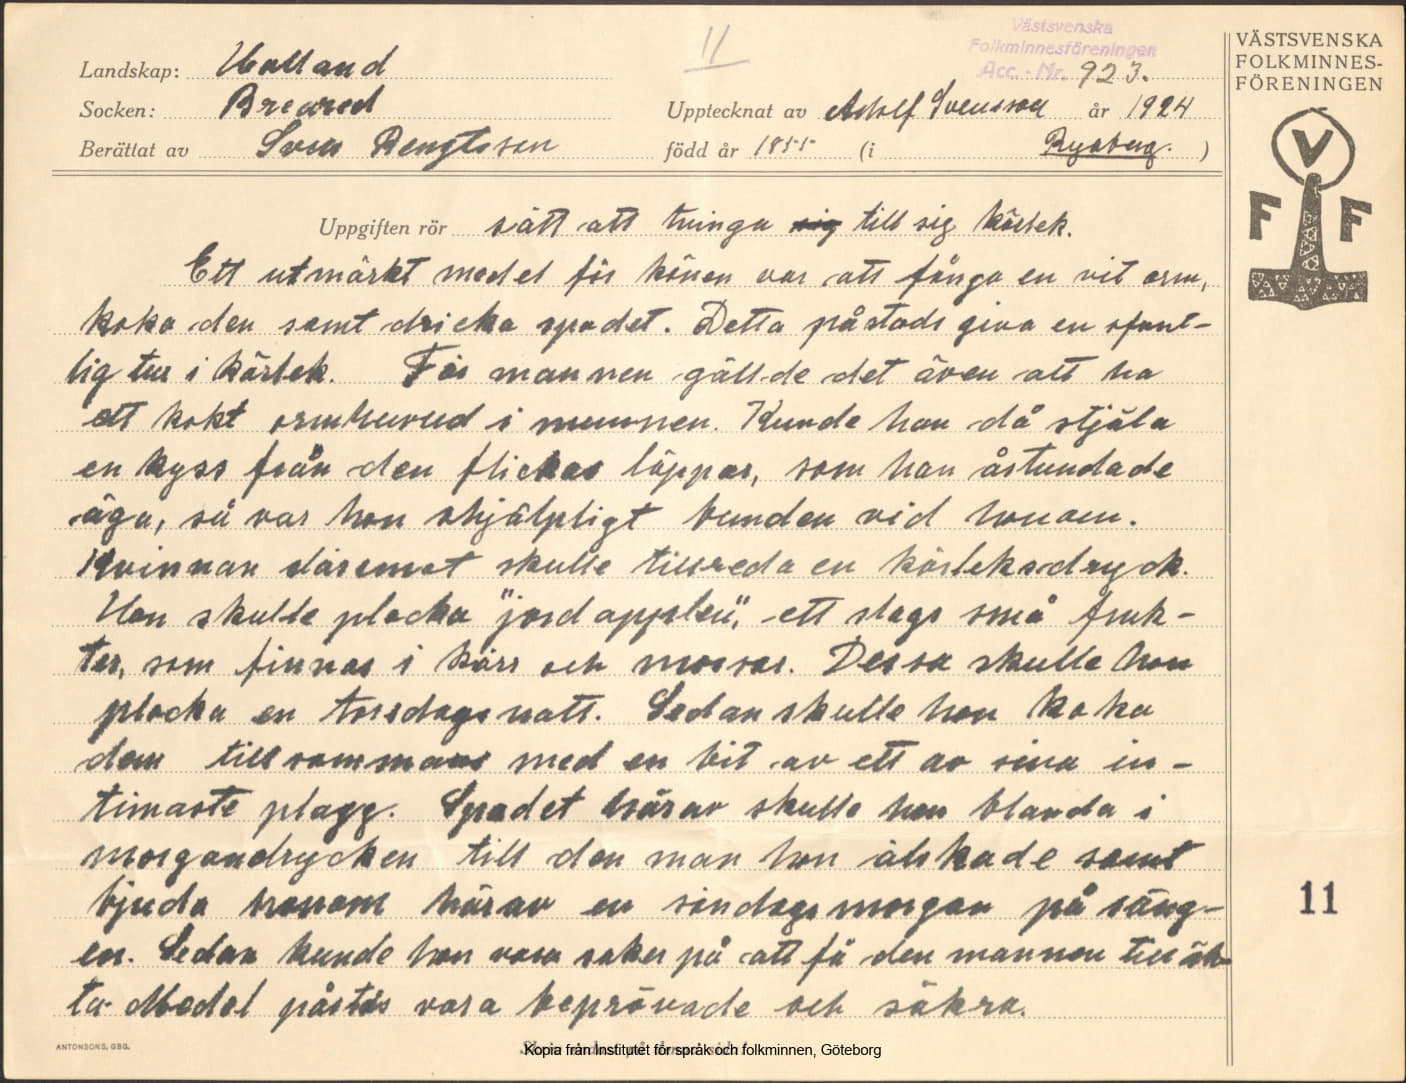 11
Västsvenska
Folkminnesföreningen
Acc. - Nr. 923.
VÄSTSVENSKA
FOLKMINNES-
FÖRENINGEN
V
F F
Landskap: Halland
Socken: Breared Upptecknat av Adolf Svensson år 1924
Berättat av Sven Bengtsson född år 1855 (i Ryaberg. )
Uppgiften rör sätt att tvinga sig till sig kärlek.
Ett utmärkt medel för könen var att fånga en vit orm,
koka den samt dricka spadet. Detta påstods giva en ofant-
lig tur i kärlek. För mannen gällde det även att ha
ett kokt ormhuvud i munnen. Kunde han då stjäla
en kyss från den flickas läppar, som han åstundade
äga, så var hon ohjälpligt bunden vid honom.
Kvinnan däremot skulle tillreda en kärleksdryck.
Hon skulle plocka "jordapplen", ett slags små fruk-
ter, som finnas i kärr och mossar. Dessa skulle hon
plocka en torsdagsnatt. Sedan skulle hon koka
dem tillsammans med en bit av ett av sina in-
timaste plagg. Spadet härav skulle hon blanda i
morgondrycken till den man hon älskade samt
bjuda honom härav en söndagsmorgon på säng-
en. Sedan kunde hon vara säker på att få den mannen till äk-
ta. Medel påstås vara beprövade och säkra.
11
ANTONSONS, GBG.
Kopia från Institutet för språk och folkminnen, Göteborg